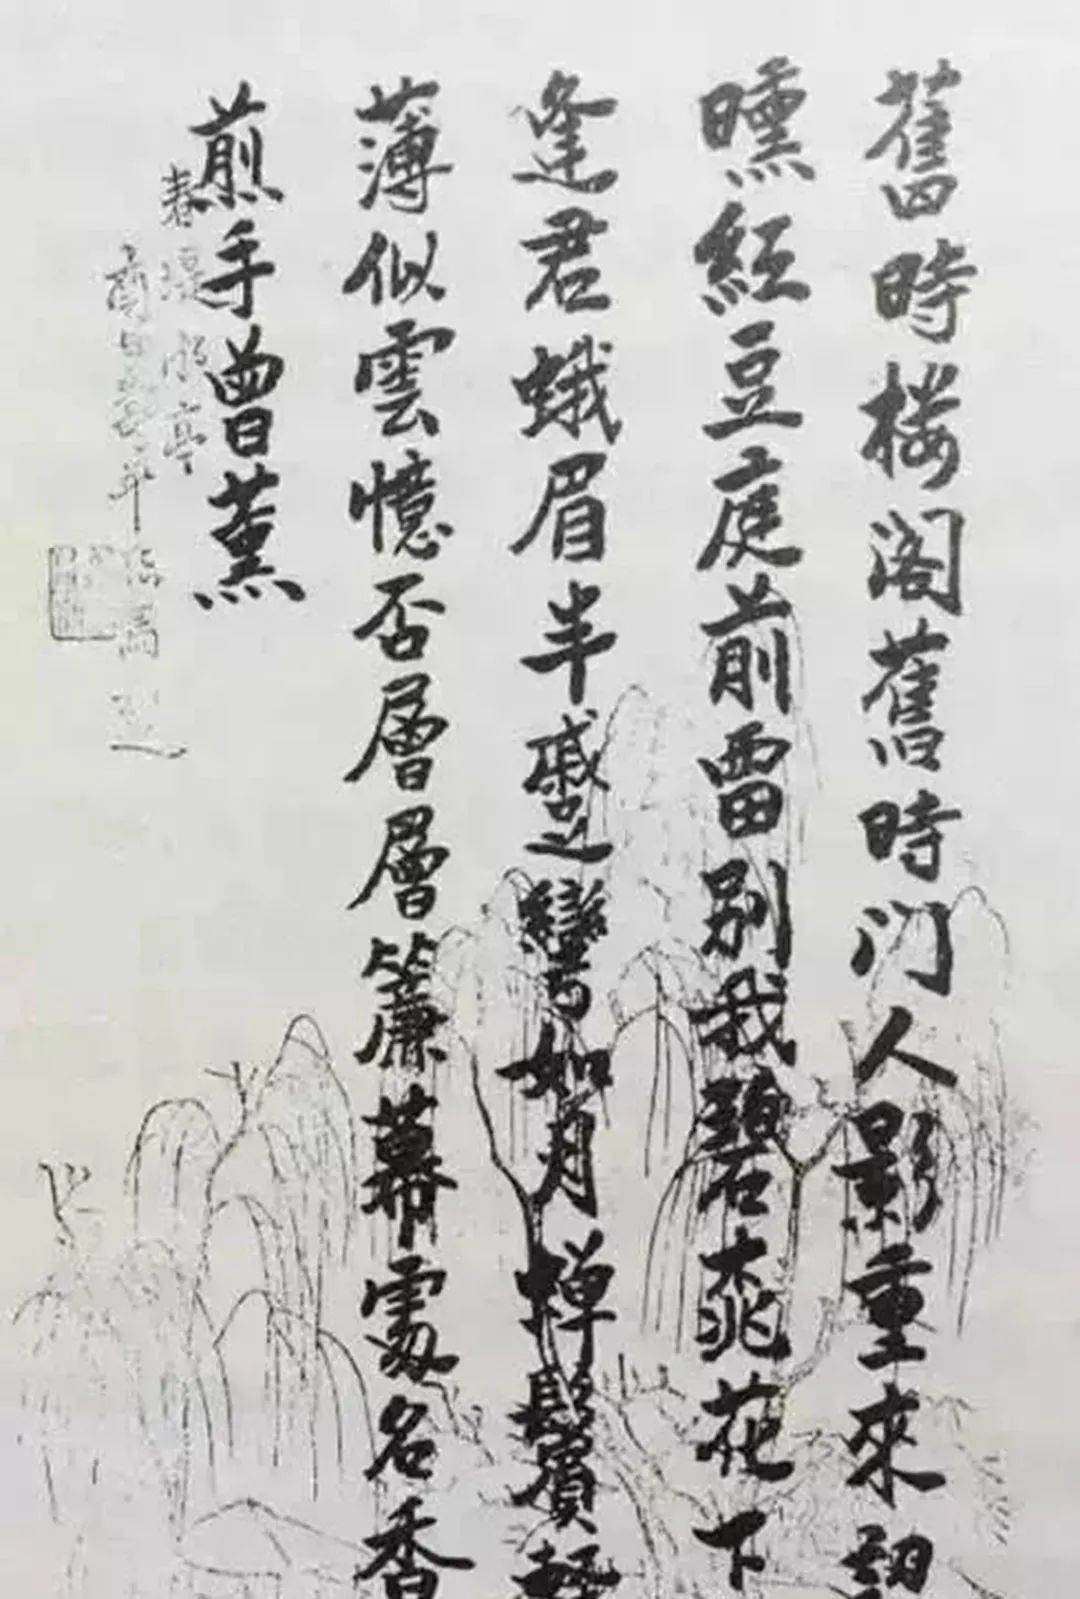 舊時楼阁舊時门人影重來
曛紅豆庭前畱別我碧桃花下
逢君蛾眉半蹙彎如月蟬鬢輕
薄似雲憶否層層簾幕處名香
煎手曾薰
春亭
年